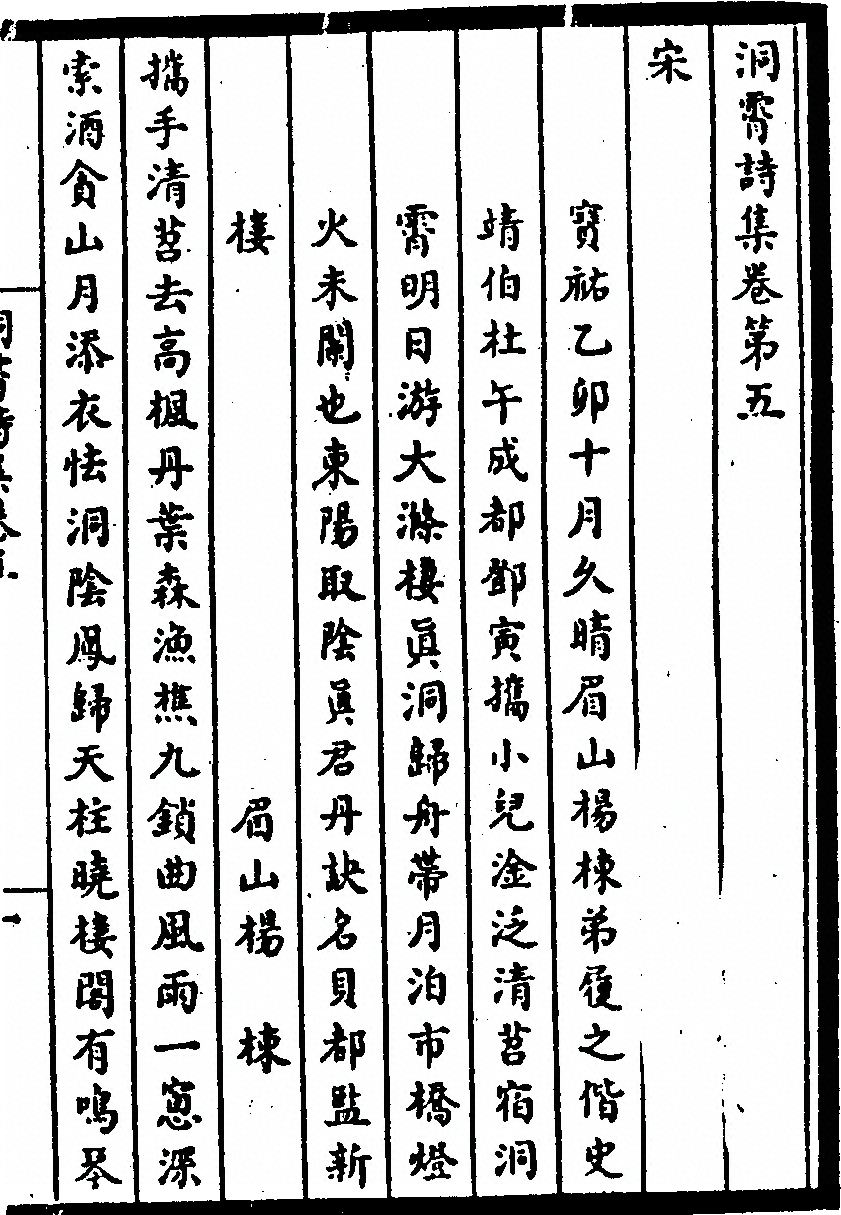 洞霄詩集卷第五
宋
寶祐乙卯十月久晴眉山楊棟弟履之偕史
靖伯杜午成都鄧寅攜小兒淦泛清苕宿洞
霄明日游大滌棲眞洞歸舟帶月泊市橋燈
火未闌也東陽取陰眞君丹訣名貝都監新
樓　眉山楊　棟
攜手清苕去高楓丹葉森漁樵九鎖曲風雨一窻深
索酒貪山月添衣怯洞陰鳳歸天柱曉棲閣有鳴琴
洞霄詩集卷五
一